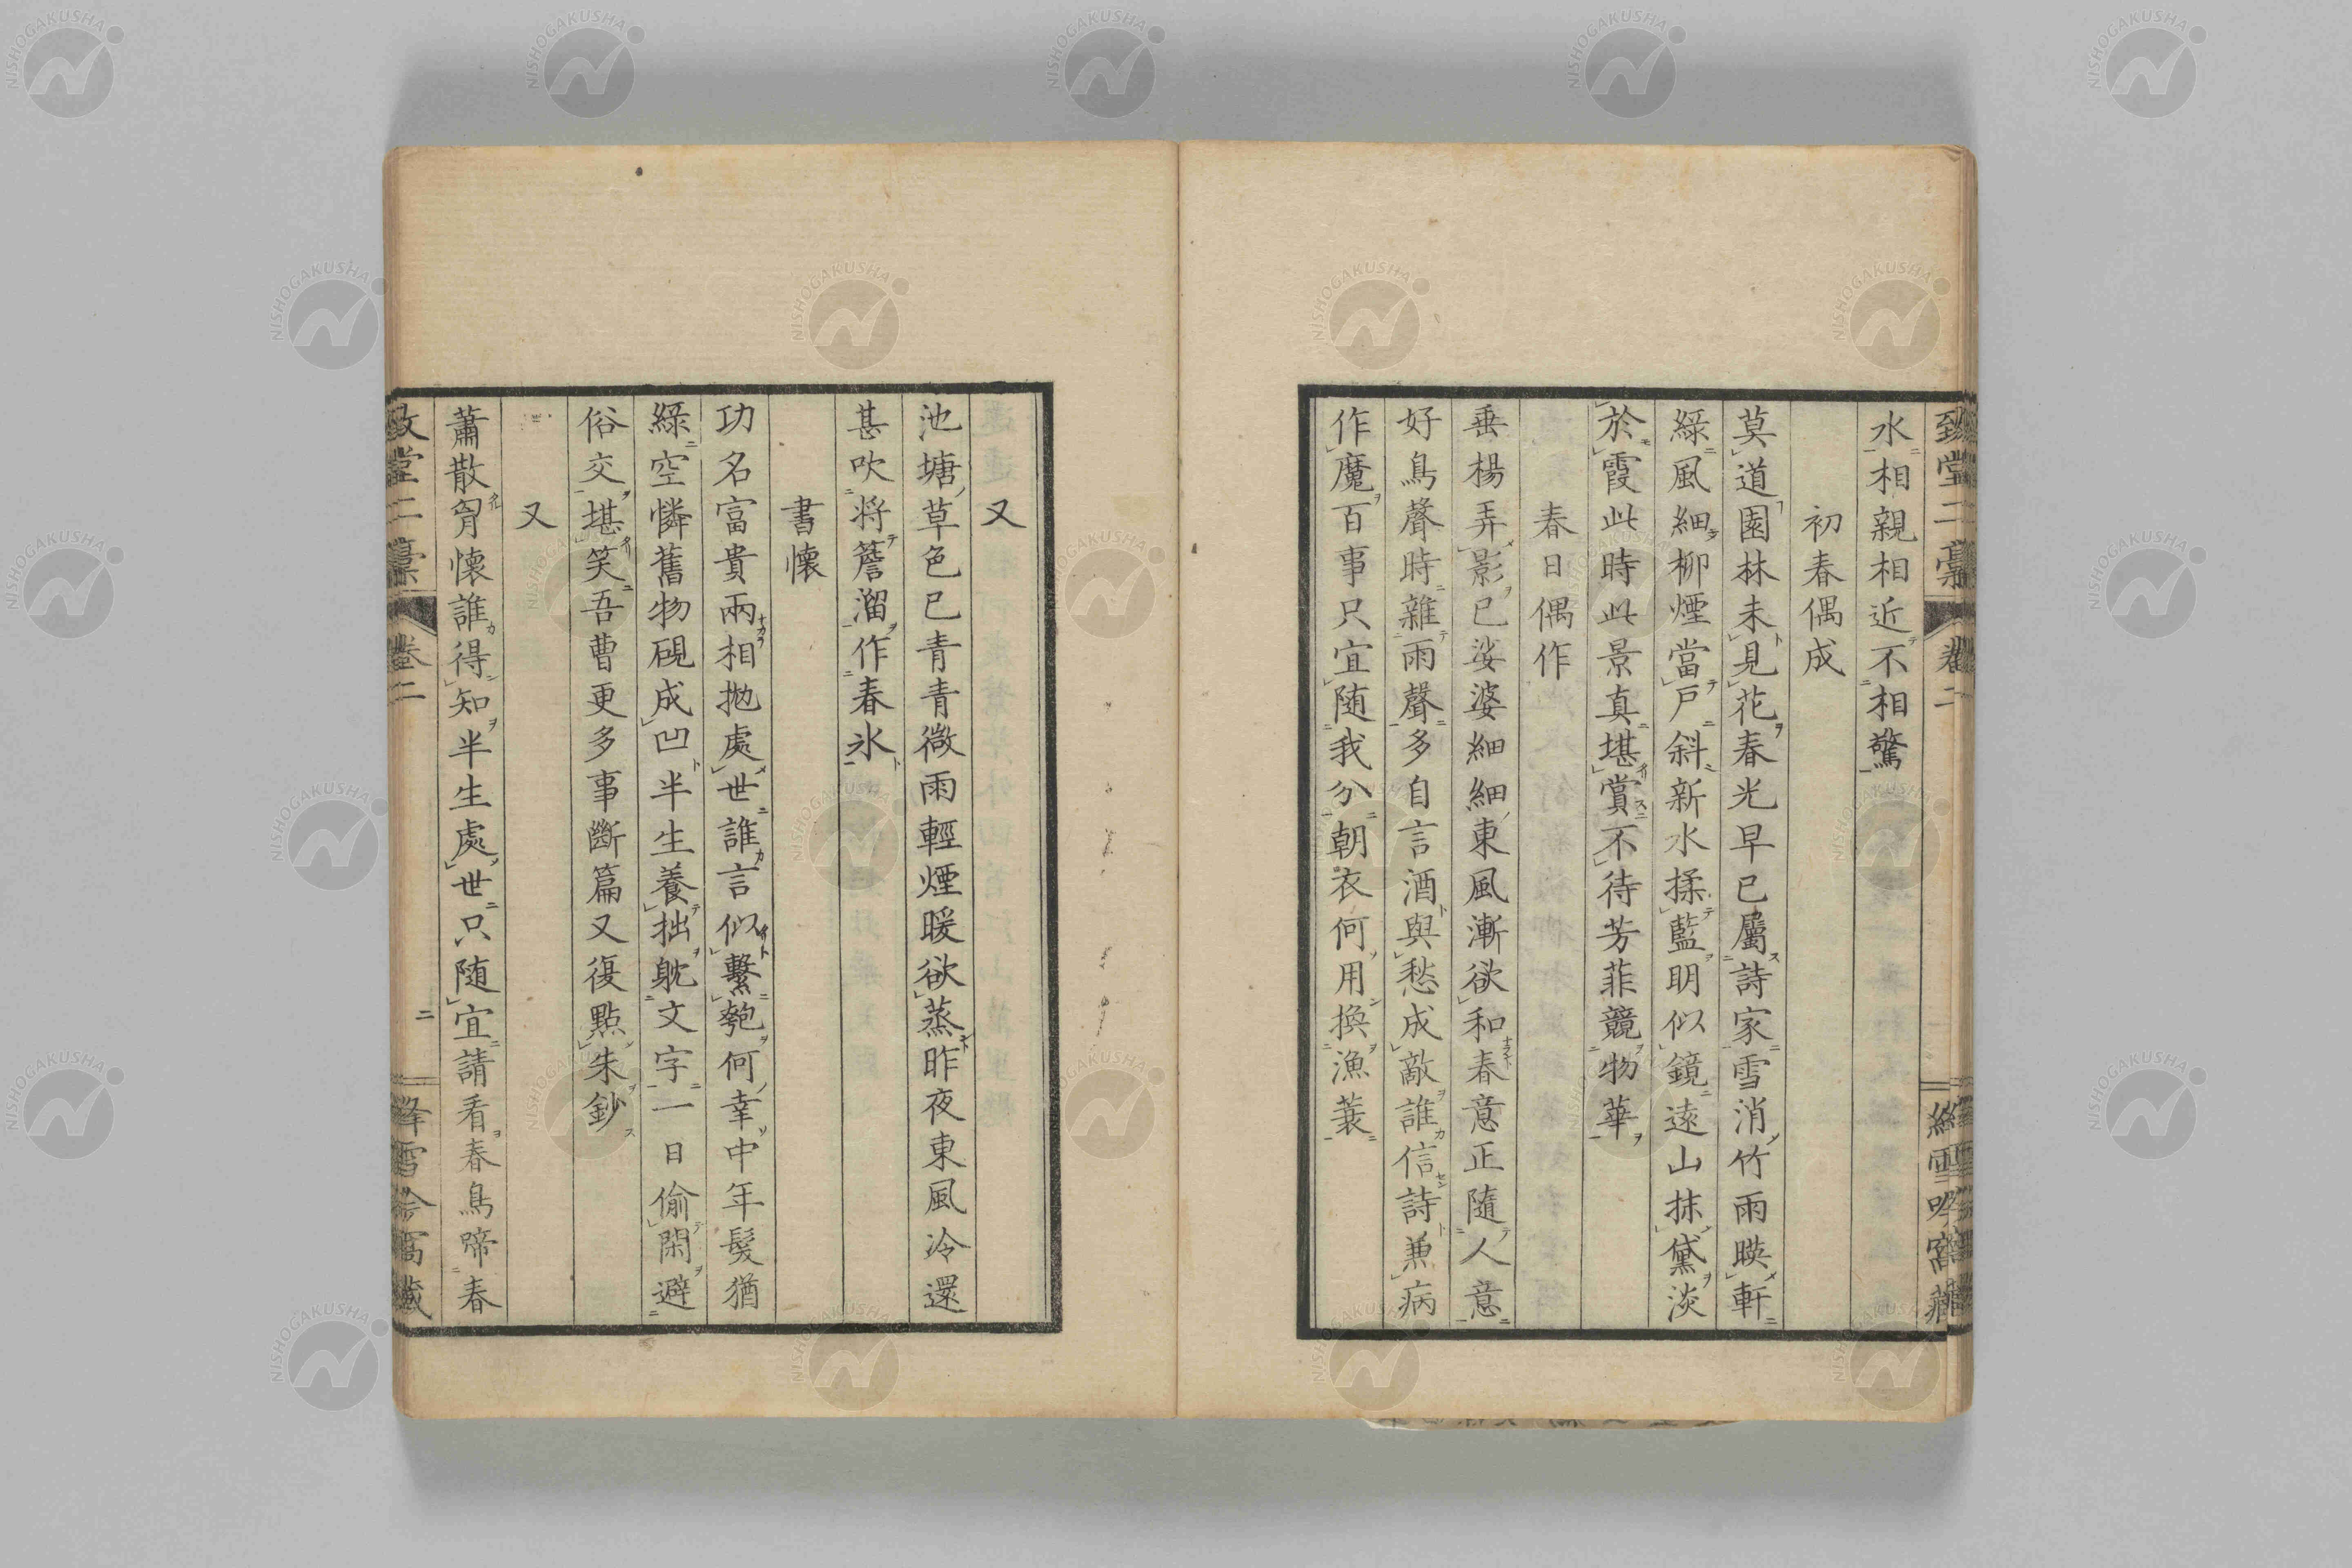 致堂二稾 卷二 絳雪吟窩藏
水相親相近不相驚
初春偶成
莫道園林未見花春光早已屬詩家雪消竹雨暎軒
綠風細柳煙當戶斜新水揉藍明似鏡遠山抹黛淡
於霞此時此景真堪賞不待芳菲競物華
春日偶作
垂楊弄影已娑婆細細東風漸欲和春意正隨人意
好鳥聲時雜雨聲多自言酒與愁成敵誰信詩兼病
作魔百事只宜随我分朝衣何用換漁蓑
又
池塘草色已青青微雨輕煙暖欲蒸昨夜東風冷還
甚吹將簷溜作春氷
書懷
功名富貴兩相拋處世誰言似繫匏何幸中年髮猶
綠空憐舊物硯成凹半生養拙躭文字一日偷閑避
俗交堪笑吾曹更多事斷篇又復點朱鈔
又
蕭散胷懷誰得知半生處世只随宜請看春鳥啼春
致堂二稾 卷二 二 絳雪吟窩藏
NISHOGAKUSHA